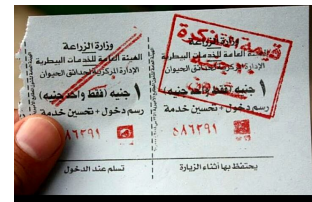 وزارة الزراعة
الهيئة العامة للخدمات البيطرية
الإدارة المركزية لحدائق الحيوان
١ جنيه (فقط واحد جنيه)
رسم دخول + تحسين خدمة
٥٨٦٣٩١
يحتفظ بها أثناء الزيارة
قيمة التذكرة
وزارة الزراعة
الهيئة العامة للخدمات البيطرية
الإدارة المركزية لحدائق الحيوان
١ جنيه (فقط واحد جنيه)
رسم دخول + تحسين خدمة
٨٦٣٩١
تسلم عند الدخول